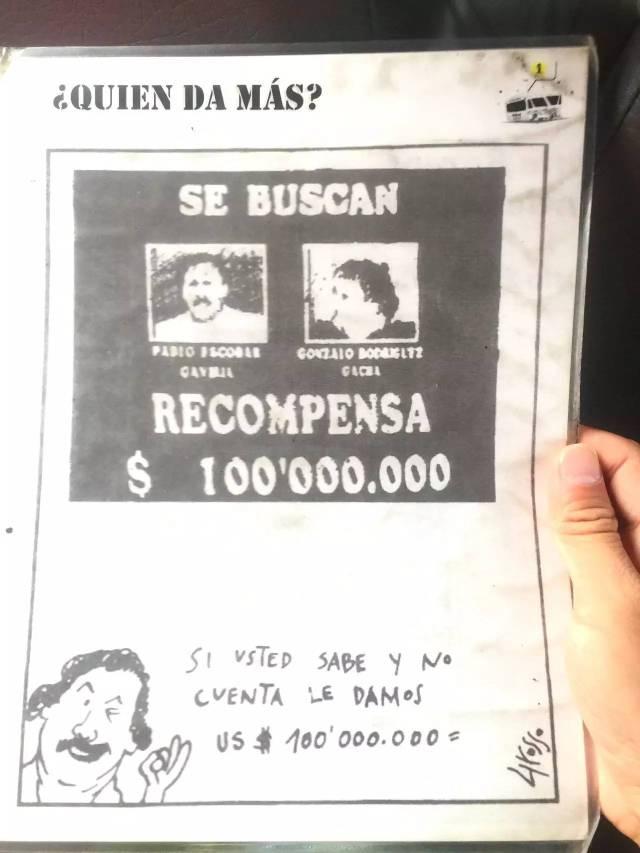 ¿QUIEN DA MÁS?
1
SE BUSCAN
PABLO ESCOBAR
GAVIRIA
GONZALO RODRIGUEZ
GACHA
RECOMPENSA
$ 100'000.000
SI USTED SABE Y NO
CUENTA LE DAMOS
US $ 100'000.000=